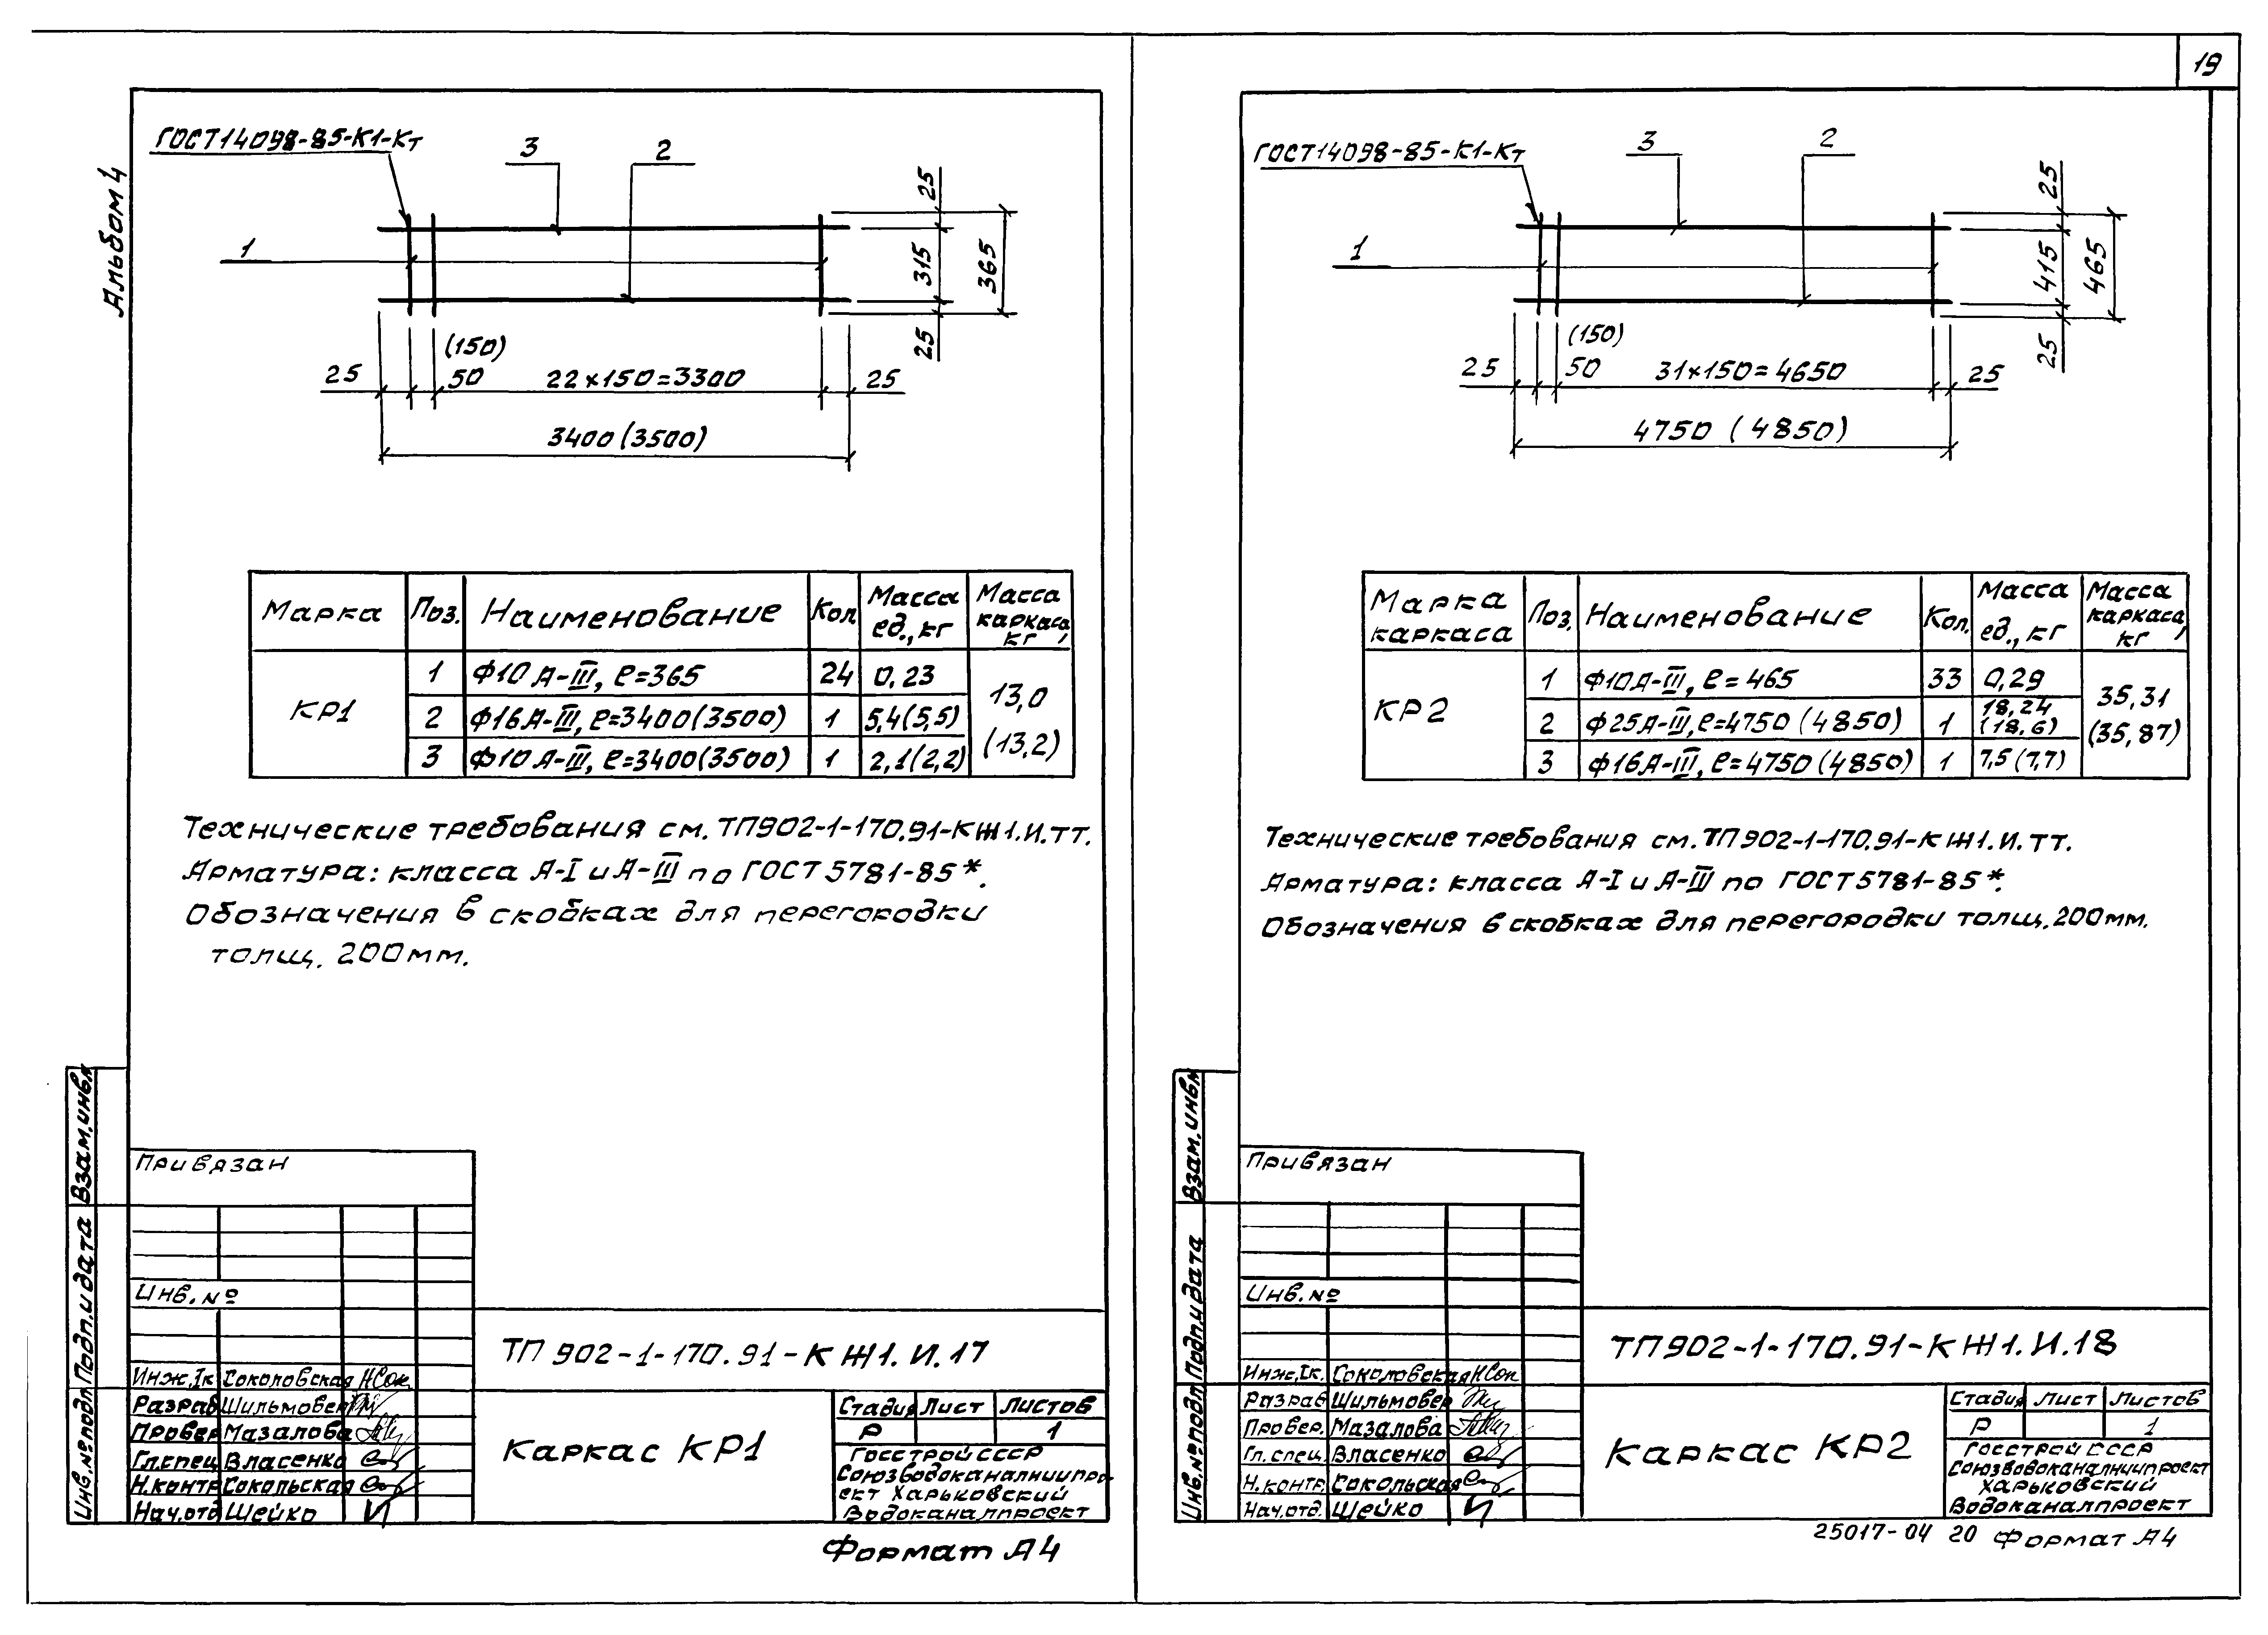 19
Альбом 4
ГОСТ14098-85-К1-Кт
3
2
1
25
315
365
25
(150)
25
50
22×150=3300
25
3400(3500)
Марка Поз. Наименование Кол. Масса ед., кг Масса каркаса, кг
КР1
1 Ф10 А-III, ℓ=365 24 0,23
2 Ф16А-III, ℓ=3400(3500) 1 5,4(5,5)
3 Ф10 А-III, ℓ=3400(3500) 1 2,1(2,2)
13,0
(13,2)
Технические требования см. ТП902-1-170.91-КЖ1.И.ТТ.
Арматура: класса А-I и А-III по ГОСТ 5781-85*.
Обозначения в скобках для перегородки
толщ. 200мм.
Взам.инв.№
Подп.и дата
Инв.№подл.
Привязан
Инв.№
Инж.Iк Соколовская
Разраб Шильмовер
Провер Мазалова
Гл.спец Власенко
Н.контр Сокольская
Нач.отд Шейко
ТП 902-1-170.91-КЖ1.И.17
Каркас КР1
Стадия Лист Листов
Р 1
Госстрой СССР
Союзводоканалниипро-
ект Харьковский
Водоканалпроект
Формат А4
ГОСТ14098-85-К1-Кт
3
2
1
25
415
465
25
(150)
25
50
31×150=4650
25
4750 (4850)
Марка каркаса Поз. Наименование Кол. Масса ед., кг Масса каркаса, кг
КР2
1 Ф10А-III, ℓ=465 33 0,29
2 Ф25А-III, ℓ=4750 (4850) 1 18,24 (18,6)
3 Ф16А-III, ℓ=4750 (4850) 1 7,5 (7,7)
35,31
(35,87)
Технические требования см. ТП902-1-170.91-КЖ1.И.ТТ.
Арматура: класса А-I и А-III по ГОСТ5781-85*.
Обозначения в скобках для перегородки толщ.200мм.
Взам.инв№
Подп.и дата
Инв.№подл.
Привязан
Инв.№
Инж.Iк. Соколовская
Разраб Шильмовер
Провер. Мазалова
Гл.спец. Власенко
Н.контр. Сокольская
Нач.отд. Шейко
ТП902-1-170.91-КЖ1.И.18
Каркас КР2
Стадия Лист Листов
Р 1
Госстрой СССР
Союзводоканалниипроект
Харьковский
Водоканалпроект
25017-04 20 Формат А4